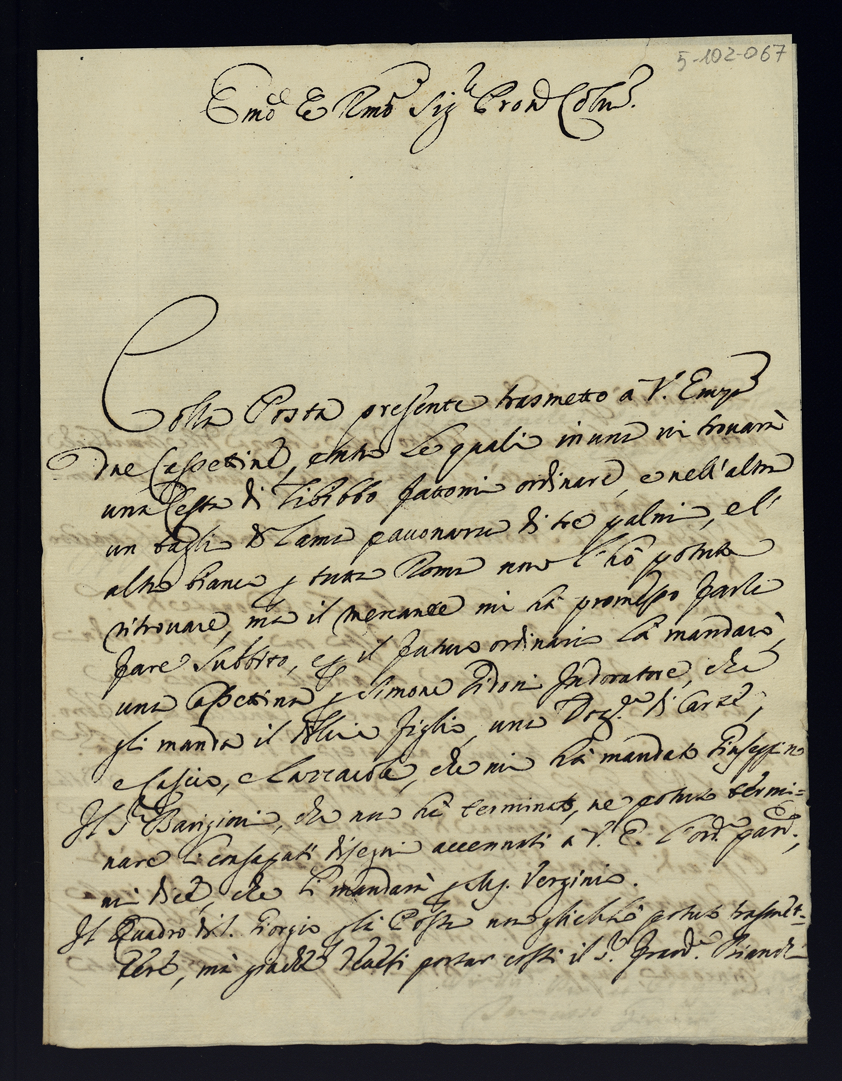 5-102-067
Emo e Rmo Sigre Pron Colmo.
Colla Posta presente trasmetto a V. Emza
due Cassettine, entro le quali in una vi trouarà
una Cesta di Zibibbo fattomi ordinare, e nell'altra
un taglio di Lama pauonazza di tre palmi, e l'
altro bianco p tutta Roma non l'hò potuto
ritrouare, ma il mercante mi hà promesso farlo
fare subbito, e p il futuro ordinario là mandarò,
una Cassettina p Simone Indoratore, che
gli manda il figlio, una Dozna di Carte,
e Cascio, e che mi hà mandato Giuseppino
Il Sr Barigioni, che non hà terminato, ne potuto termi=
nare li consaputi disegni accennati a V. E. Pad.e,
mi dice, che li mandarà p Sig. Verginio.
Il Quadro di S. Giorgio p la Posta non potuto trasmet=
tere, mà portar costì il Sr Bianchi